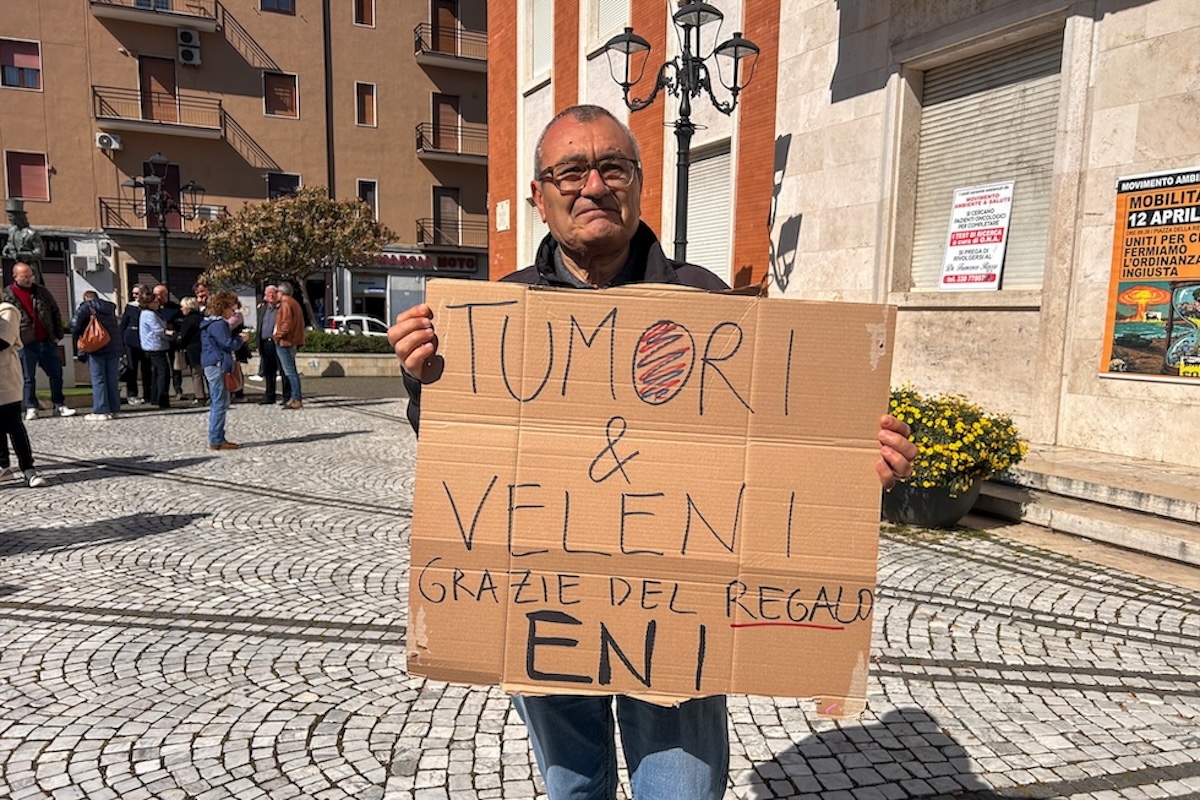 TUMORI
&
VELENI
GRAZIE DEL REGALO
ENI
MOVIMENTO
AMBIENTE & SALUTE
SI CERCANO
PAZIENTI ONCOLOGICI
PER COMPLETARE
I TEST DI RICERCA
SI PREGA DI
RIVOLGERSI AL
MOVIMENTO AMBI
MOBILITA
12 APRIL
UNITI PER
FERMIAMO
L'ORDINANZA
INGIUSTA
MOTO